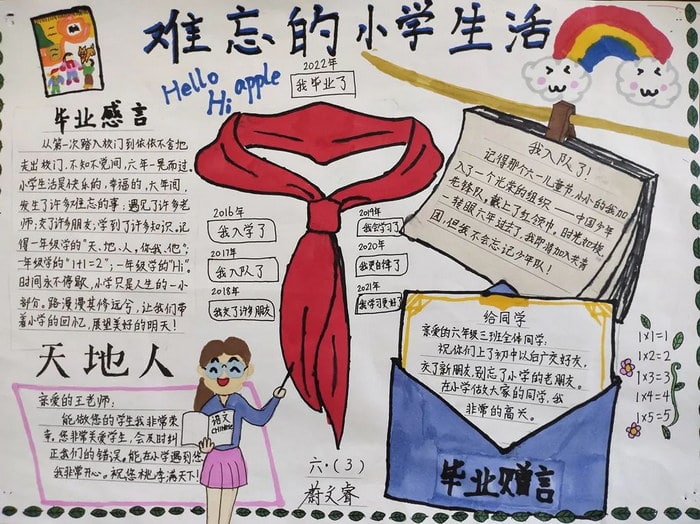 难忘的小学生活
Hello
Hi apple
2022年
我毕业了
毕业感言
从第一次踏入校门到依依不舍地
走出校门,不知不觉间,六年一晃而过。
小学生活是快乐的,幸福的,六年间,
发生了许多难忘的事;遇见了许多老
师;交了许多朋友;学到了许多知识。记
得一年级学的"天,地,人,你我,他";
一年级学的"1+1=2";一年级学的"Hi"。
时间永不停歇,小学只是人生的一小
部分。路漫漫其修远兮,让我们带
着小学的回忆,展望美好的明天!
2016年
我入学了
2017年
我入队了
2018年
我交了许多朋友
2019年
我会学习了
2020年
我更自律了
2021年
我学习更好了
我入队了!
记得那个六一儿童节,小小的我加
入了一个光荣的组织——中国少年
先锋队,戴上了红领巾。时光如梭
一转眼六年过去了,我即将加入共青
团,但我不会忘记少年队!
给同学
亲爱的六年级三班全体同学:
祝你们上了初中以后广交好友,
交了新朋友,别忘了小学的老朋友。
在小学做大家的同学,我
非常的高兴。
毕业赠言
1×1=1
1×2=2
1×3=3
1×4=4
1×5=5
天地人
亲爱的王老师:
能做您的学生我非常荣
幸。您非常关爱学生,会及时纠
正我们的错误。能在小学遇到您
我非常开心。祝您桃李满天下!
语文
CHINESE
六·(3)
蔚文睿